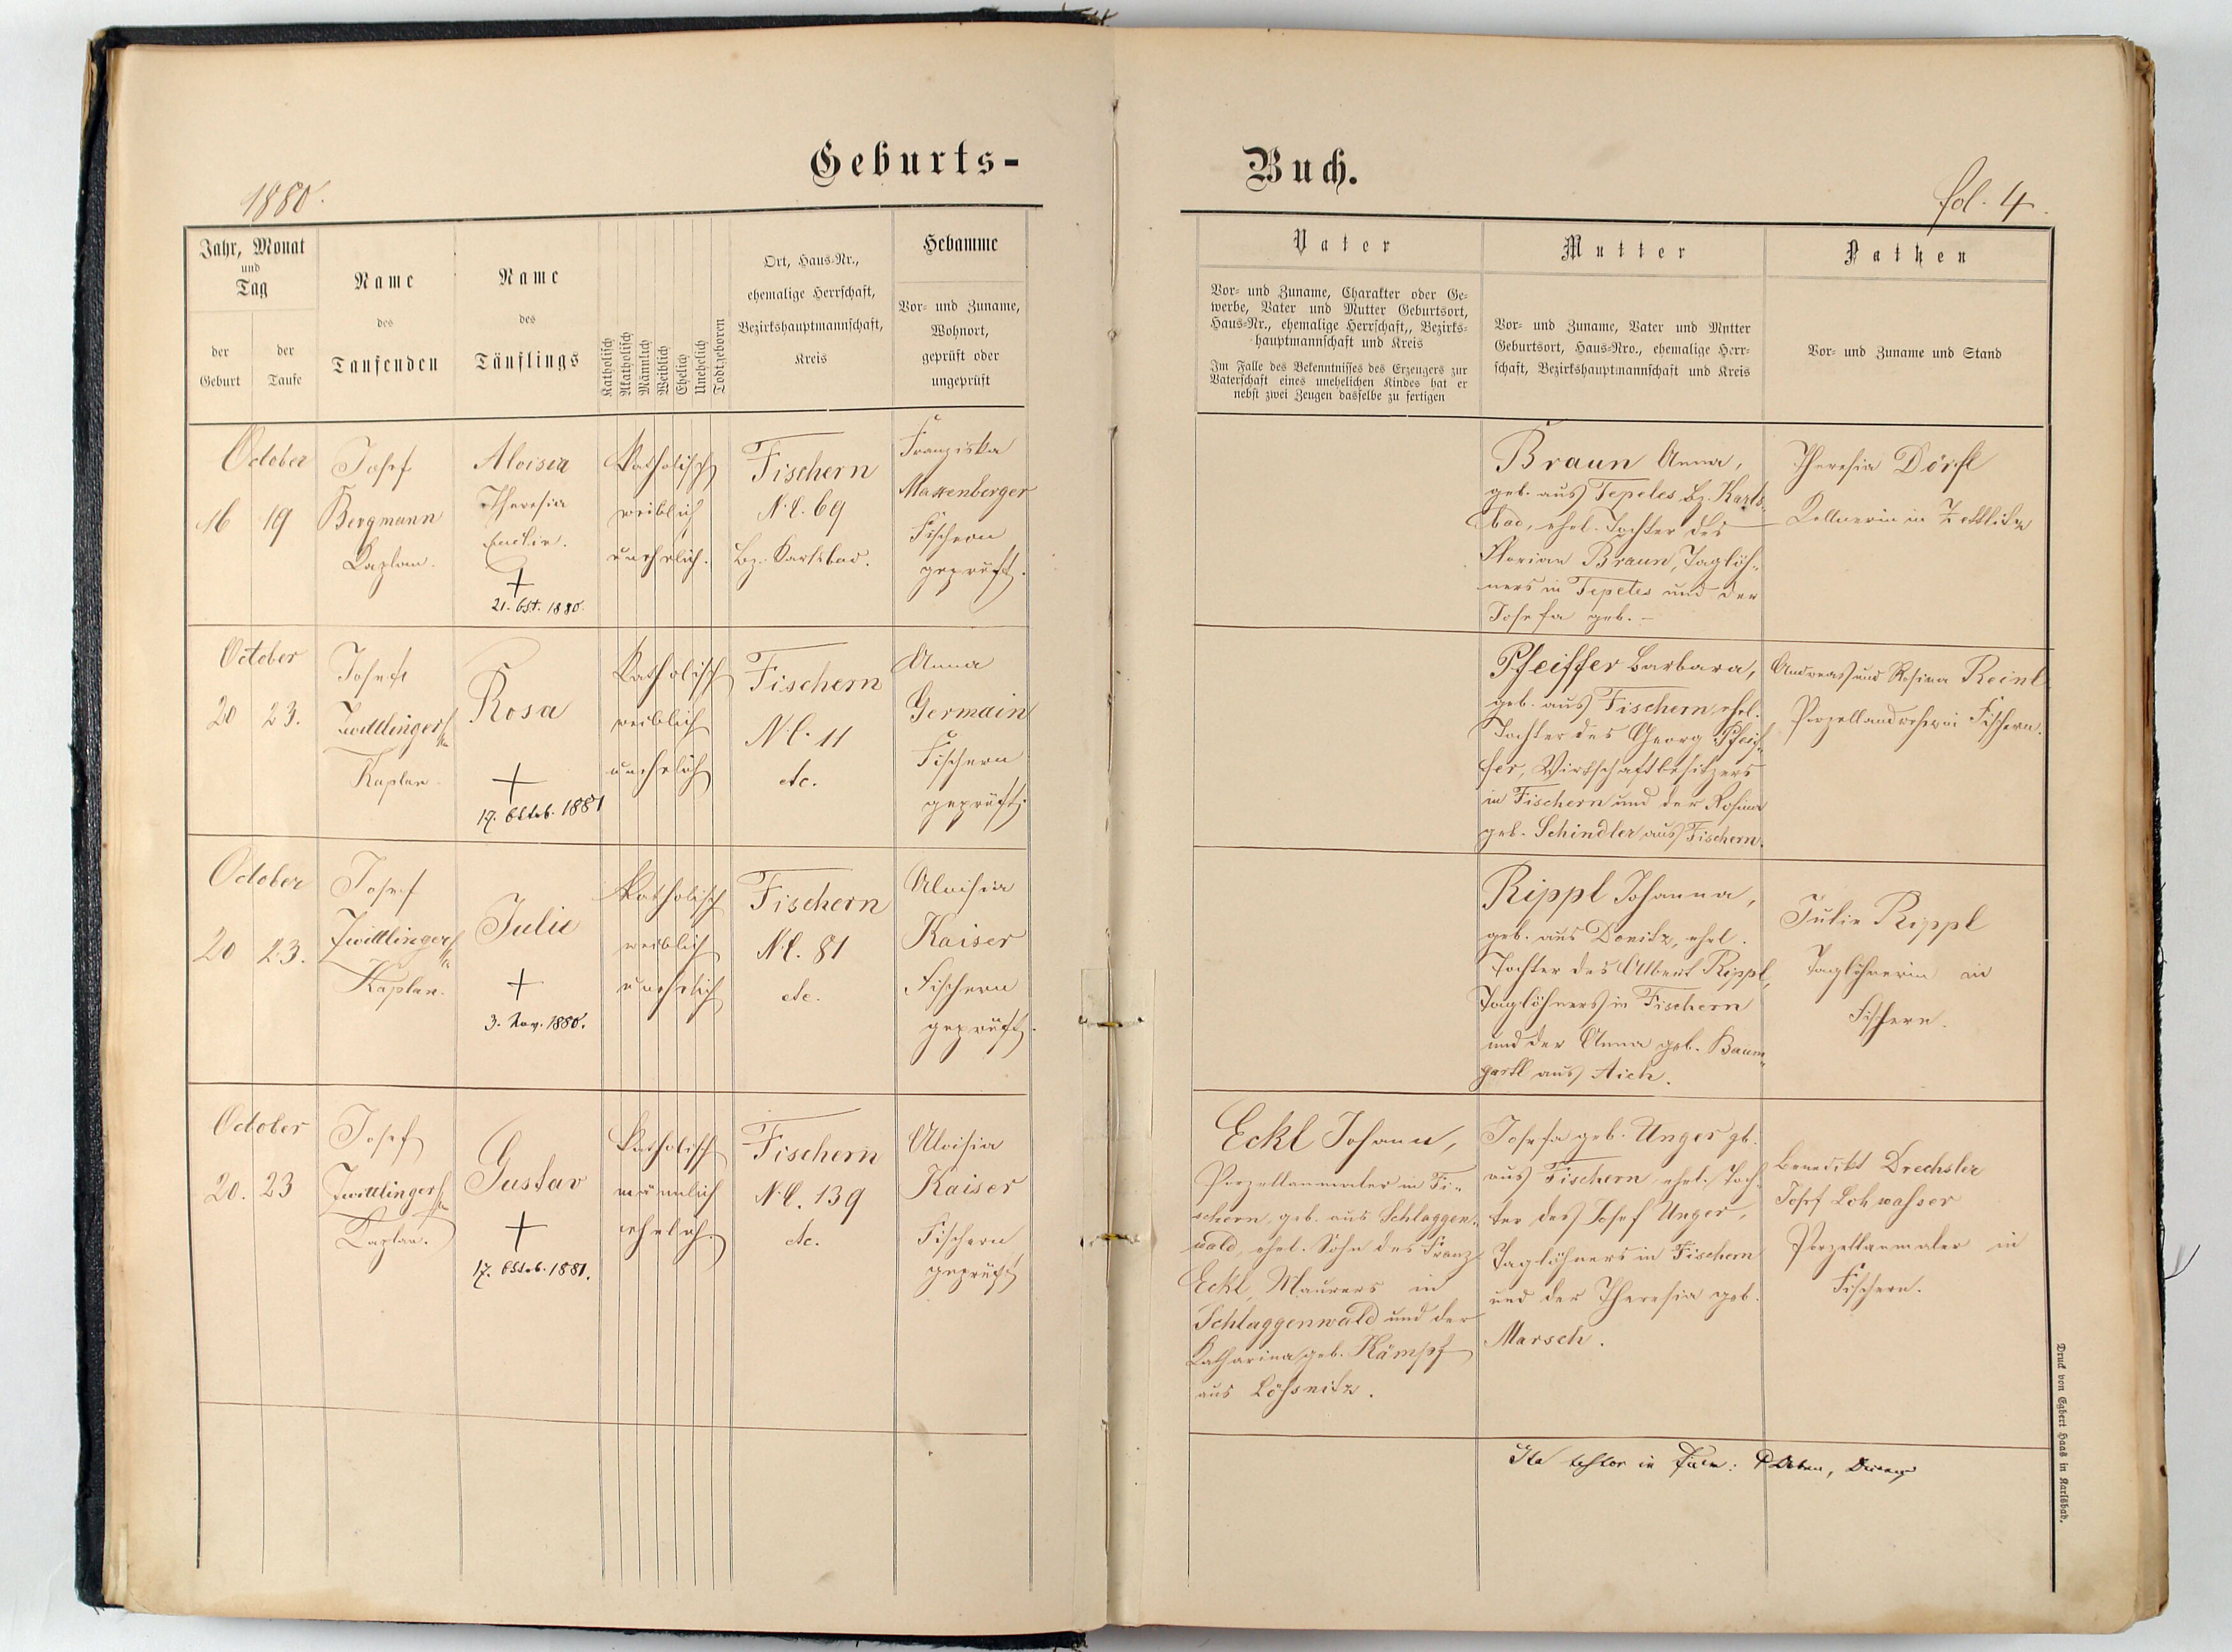 Geburts-
Buch.
1880.
fol. 4.
Jahr, Monat
und
Tag
der
Geburt
der
Taufe
Name
des
Taufenden
Name
des
Täuflings
Katholisch
Akatholisch
Männlich
Weiblich
Ehelich
Unehelich
Todtgeboren
Ort, Haus-Nr.,
ehemalige Herrschaft,
Bezirkshauptmannschaft,
Kreis
Hebamme
Vor- und Zuname,
Wohnort,
geprüft oder
ungeprüft
Vater
Vor- und Zuname, Charakter oder Ge-
werbe, Vater und Mutter Geburtsort,
Haus-Nr., ehemalige Herrschaft,, Bezirks-
hauptmannschaft und Kreis
Im Falle des Bekenntnisses des Erzeugers zur
Vaterschaft eines unehelichen Kindes hat er
nebst zwei Zeugen dasselbe zu fertigen
Mutter
Vor- und Zuname, Vater und Mntter
Geburtsort, Haus-Nro., ehemalige Herr-
schaft, Bezirkshauptmannschaft und Kreis
Pathen
Vor- und Zuname und Stand
October
16 19
Josef
Bergmann
Kaplan.
Aloisia
Theresia
+
21. Okt. 1880.
katholisch
weiblich
unehelich.
Fischern
N.C. 69
Bz. Karlsbad.
Franziska
Fischern
geprüft.
Braun Anna,
geb. aus Tepeles Bz. Karls-
bad, ehel. Tochter des
Florian Braun, Taglöh-
ners in Tepeles und der
Josefa geb. –
Theresia Dörfl
Kellnerin in Zettlitz
October
20 23.
Josef
Zwittlinger
Kaplan
Rosa
+
17. Oktob. 1881
katholisch
weiblich
unehelich
Fischern
N.C. 11
etc.
Anna
Germain
Fischern
geprüft.
Pfeiffer Barbara,
geb. aus Fischern, ehel.
Tochter des Georg Pfeif-
fer, Wirtschaftbesitzers
in Fischern und der Rosina
geb. Schindler aus Fischern.
Andreas und Rosina Reinl
Porzellandreher in Fischern.
October
20 23.
Josef
Zwittlinger
Kaplan.
Julie
+
3. Nov. 1880.
katholisch
weiblich
unehelich
Fischern
N.C. 81
etc.
Aloisia
Kaiser
Fischern
geprüft.
Rippl Johanna,
geb. aus Donitz, ehel.
Tochter des Albert Rippl,
Taglöhners in Fischern
und der Anna geb. Baum-
gartl aus Aich.
Julie Rippl
Taglöhnerin in
Fischern.
October
20. 23
Josef
Zwittlinger
Kaplan.
Gustav
+
17. Oktob. 1881.
katholisch
männlich
ehelich.
Fischern
N.C. 139
etc.
Aloisia
Kaiser
Fischern
geprüft
Eckl Johann,
Porzellanmaler in Fi-
schern, geb. aus Schlaggen-
wald, ehel. Sohn des Franz
Eckl, Maurers in
Schlaggenwald und der
Katharina geb. Kämpf
aus Lößnitz.
Josefa geb. Unger gb.
aus Fischern, ehel. Toch-
ter des Josef Unger,
Taglöhners in Fischern
und der Theresia geb.
Marsch.
Benedikt Drechsler
Josef Lohwasser
Porzellanmaler in
Fischern.
Ita testor in
Druck von Egbert Haas in Karlsbad.